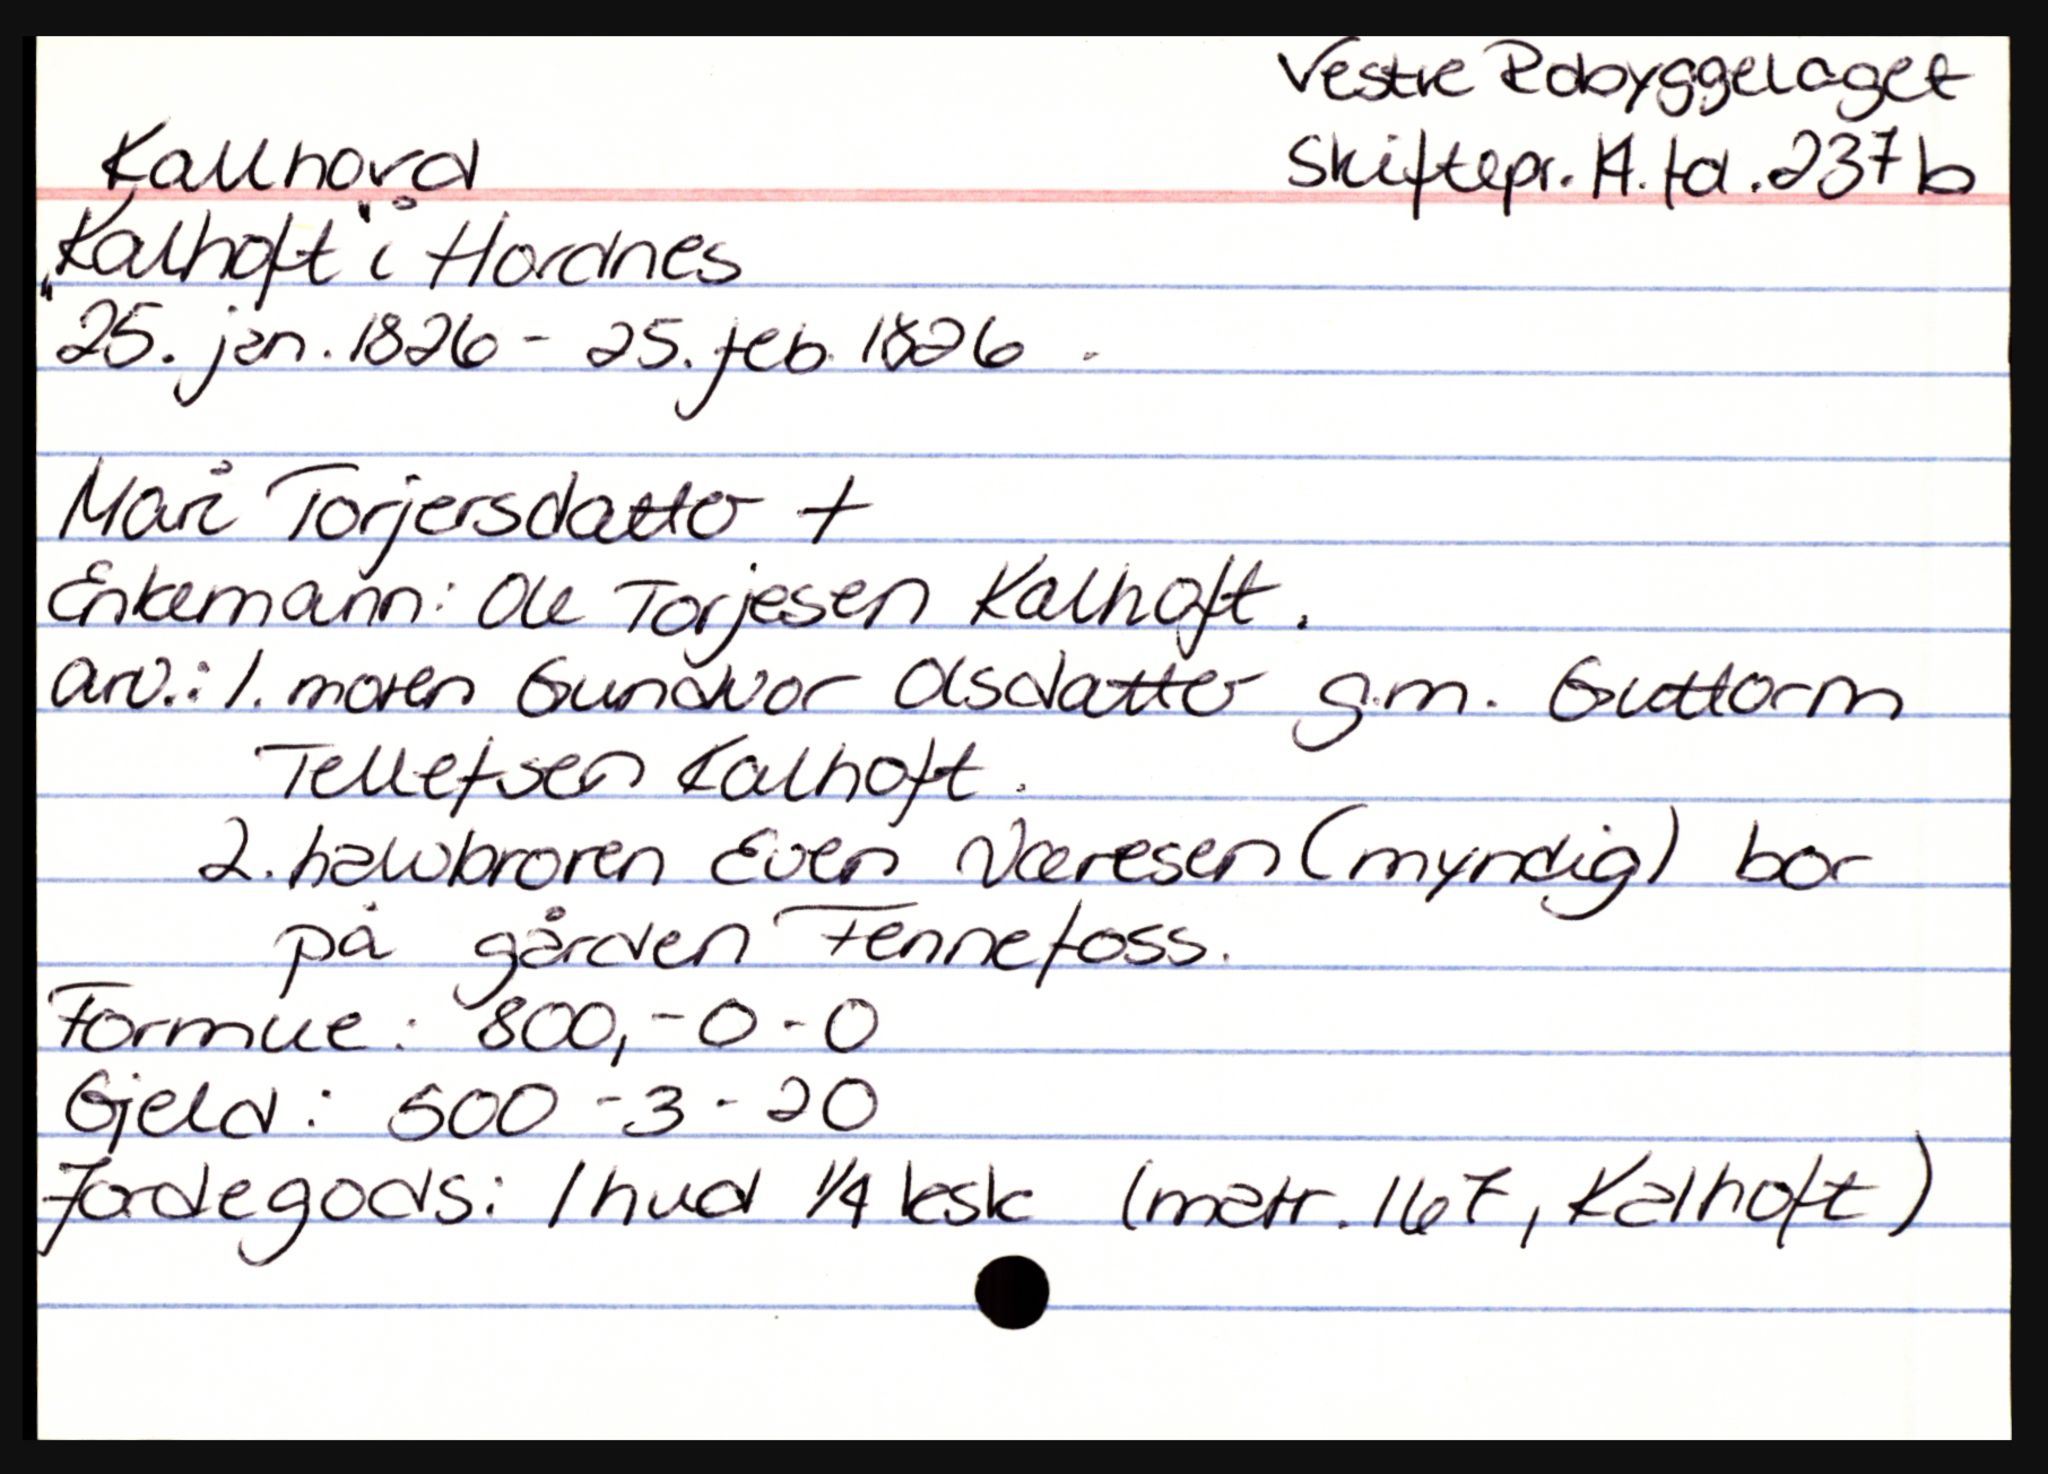 Vestre Robyggelaget
Kallhovd
Skiftepr. 14. fol. 237 b
"Kalhoft" i Hordnes
25. jan. 1826 - 25. feb. 1826.
Mari Torjersdatter +
Enkemann: Ole Torjesen Kalhoft.
Arv.: 1. moren Gundvor Olsdatter g.m. Guttorm
Tellefsen Kalhoft.
2. halvbroren Even Væresen (myndig) bor
på gården Fennefoss.
Formue: 800,-0-0
Gjeld: 500-3-20
Jordegods: 1 hud 1/4 ksk (matr. 167, Kalhoft)